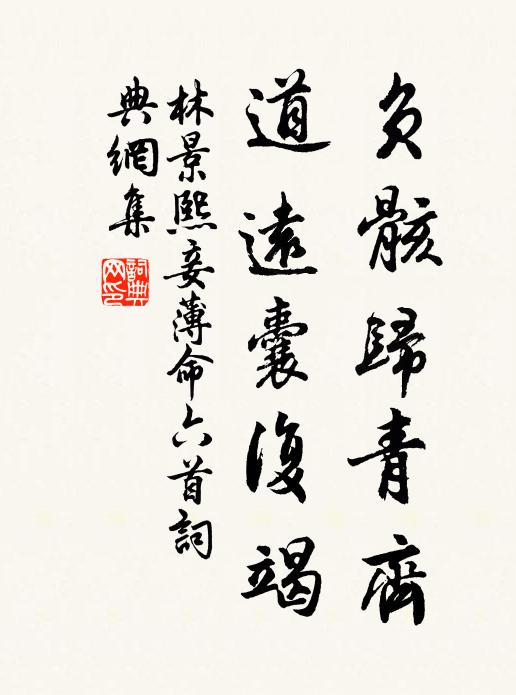 負骸歸青齊
道遠囊復竭
林景熙妾薄命六首詞
典網集
詞典
网印